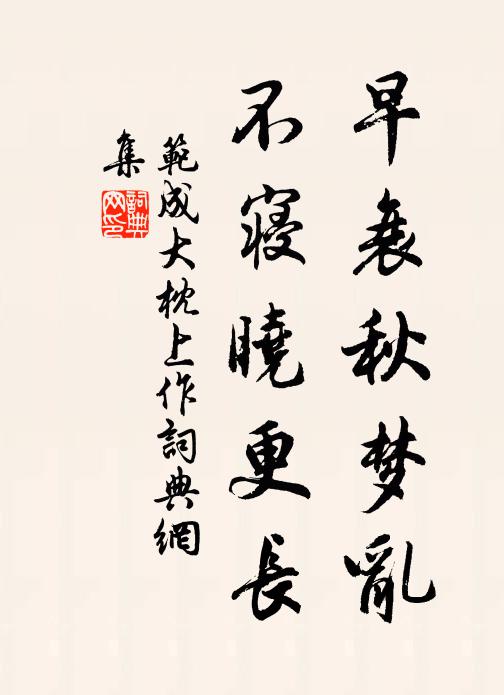 早衰秋梦亂
不寝曉更長
範成大枕上作詞典網
集
詞典網印